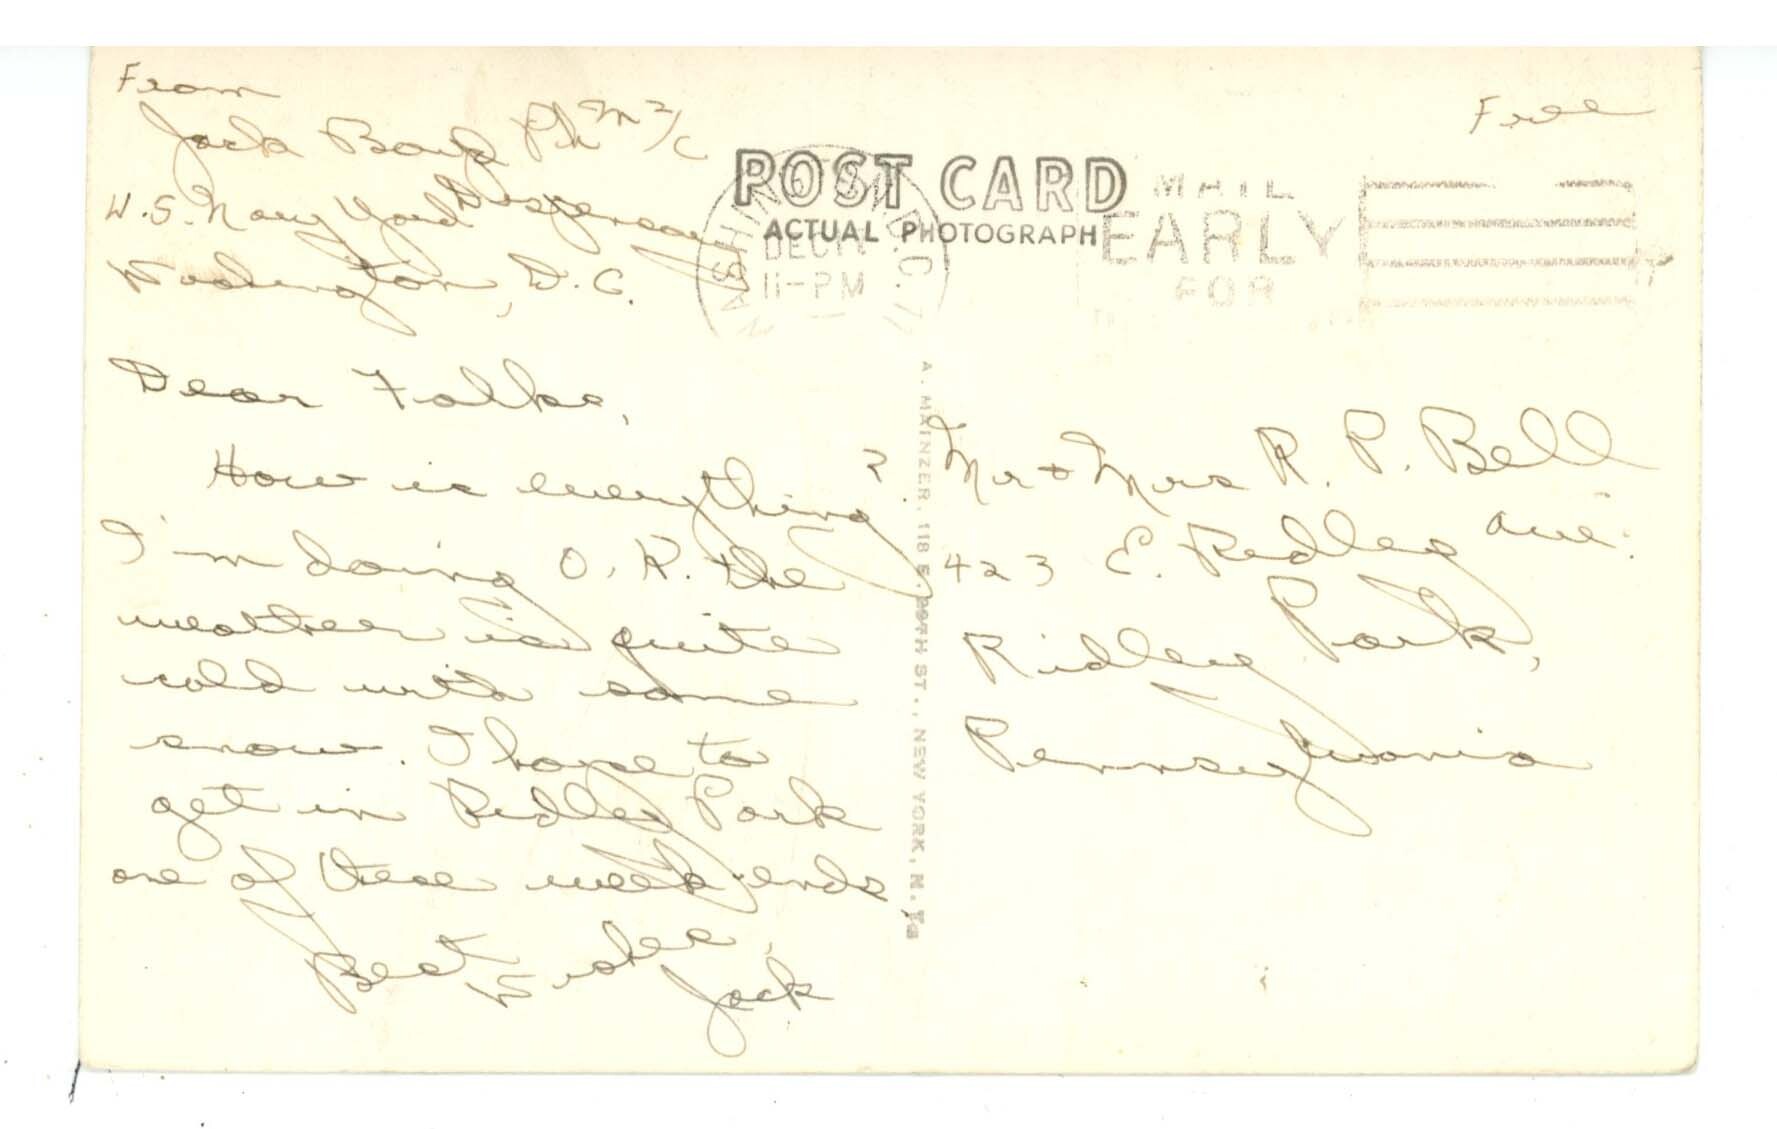 From
Jack Boyd PhM2/c
U.S. Navy Yard Dispensary
Washington, D.C.
Free
POST CARD
ACTUAL PHOTOGRAPH
WASHINGTON, D.C.
DEC
11-PM
MAIL
EARLY
FOR
Dear Folks,
How is everything?
I'm doing O.K. the
weather is quite
cold with some
snow. I hope to
get in Ridley Park
one of these week ends,
Best wishes,
Jack
A. MAINZER, 118 E. 28TH ST., NEW YORK, N.Y.
Mr & Mrs R. P. Bell
423 E. Ridley Ave.
Ridley Park,
Pennsylvania